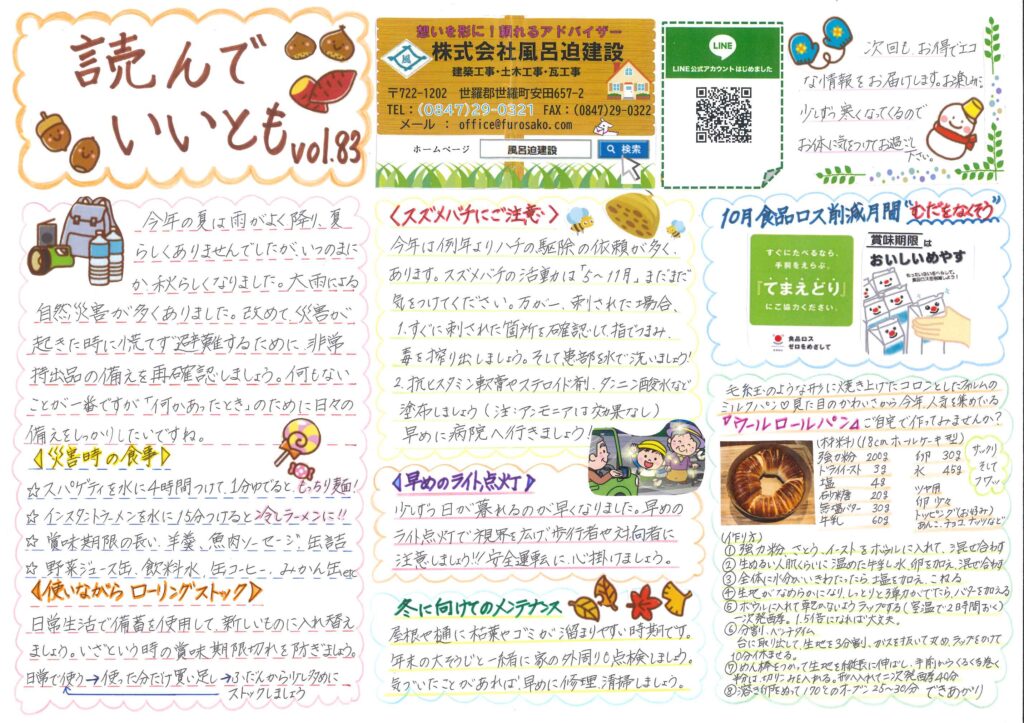 読んで
いいとも
vol.83
想いを形に!頼れるアドバイザー
株式会社風呂迫建設
建築工事・土木工事・瓦工事
〒722-1202 世羅郡世羅町安田657-2
TEL:(0847)29-0321 FAX:(0847)29-0322
メール : office@furosako.com
ホームページ 風呂迫建設 検索
LINE
LINE公式アカウント はじめました
次回も お得でエコ
な情報をお届けします。お楽しみに
少しずつ寒くなってくるので
お体に気をつけてお過ごし
下さい。
今年の夏は雨がよく降り、夏
らしくありませんでしたが、いつのまに
か秋らしくなりました。大雨による
自然災害が多くありました。改めて、災害が
起きた時に慌てず避難するために、非常
持出品の備えを再確認しましょう。何もない
ことが一番ですが「何かあったとき」のために日々の
備えをしっかりしたいですね。
《災害時の食事》
☆スパゲティを水に4時間つけて、1分ゆでると、もっちり麺!
☆インスタントラーメンを水に15分つけると冷しラーメンに!!
☆賞味期限の長い、羊羹、魚肉ソーセージ、缶詰
☆野菜ジュース缶、飲料水、缶コーヒー、みかん缶etc
《使いながら ローリングストック》
日常生活で備蓄を使用して、新しいものに入れ替え
ましょう。いざという時の賞味期限切れを防ぎましょう。
日常で使う→使った分だけ買い足し→ふだんから少し多めに
ストックしましょう
〈スズメバチにご注意〉
今年は例年よりハチの駆除の依頼が多く
あります。スズメバチの活動は「5〜11月」まだまだ
気をつけてください。万が一、刺された場合、
1.すぐに刺された箇所を確認して指でつまみ
毒を搾り出しましょう。そして患部を水で洗いましょう!
2.抗ヒスタミン軟膏やステロイド剤、タンニン酸水など
塗布しましょう(注:アンモニアは効果なし)
早めに病院へ行きましょう!
《早めのライト点灯》
少しずつ日が暮れるのが早くなりました。早めの
ライト点灯で視界を広げ、歩行者や対向者に
注意しましょう!!!安全運転に心掛けましょう。
冬に向けてのメンテナンス
屋根や樋に枯葉やゴミが溜まりやすい時期です。
年末の大そうじと一緒に家の外周りも点検しましょう。
気づいたことがあれば、早めに修理、清掃しましょう。
10月食品ロス削減月間"むだをなくそう"
すぐにたべるなら、
手前をえらぶ。
『てまえどり』
にご協力ください。
食品ロス
ゼロをめざして
賞味期限は
おいしいめやす
毛糸玉のような形に焼き上げたコロンとしたフォルムの
ミルクパン♡見た目のかわいさから今年、人気を集めている
『ウールロールパン』ご自宅で作ってみませんか?
(材料)(18cmホールケーキ型)
強力粉 200g
ドライイースト 3g
塩 4g
砂糖 20g
無塩バター 30g
牛乳 60g
卵 30g
水 45g
ツヤ用
卵 少々
トッピング(お好み)
あんこ、チョコ、ナッツなど
サックリ
そして
フワッ
(作り方)
①強力粉、さとう、イーストをボウルに入れて、混ぜ合わす
②生ぬるい人肌くらいに温めた牛乳、水、卵を加え、混ぜ合わす
③全体に水分がいきわたったら、塩を加え、こねる
④生地がなめらかになり、しっとりと弾力がでてたら、バターを加える
⑤ボウルに入れて乾燥のないようラップする(室温で2時間おく)
一次発酵。1.5倍になれば大丈夫。
⑥分割、ベンチタイム
台に取り出して、生地を3分割、ガスを抜いて丸め、ラップをかけて
10分休ませる。
⑦めん棒をつかって生地を縦長に伸ばし、手前からくるくる巻く
⑧溶き卵をぬって170℃のオーブン25〜30分 できあがり